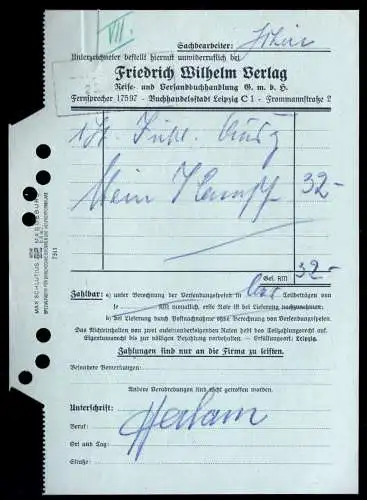 VII.
Sachbearbeiter:
Unterzeichneter bestellt hiermit unwiderruflich bei
Friedrich Wilhelm Verlag
Reise- und Versandbuchhandlung G. m. b. H.
Fernsprecher 17597 - Buchhandelsstadt Leipzig C 1 - Frommannstraße 2
Mein Kampf 32-
Gel. RM 32-
Zahlbar: a) unter Berechnung der Versendungsspesen in bar Teilbeträgen von
RM monatlich, erste Rate ist bei Lieferung nachzunehmen.
b) bei Lieferung durch Postnachnahme ohne Berechnung von Versendungsspesen.
Das Nichteinhalten von zwei aufeinanderfolgenden Raten hebt das Teilzahlungsrecht auf.
Eigentumsrecht bis zur völligen Bezahlung vorbehalten. — Erfüllungsort: Leipzig.
Zahlungen sind nur an die Firma zu leisten.
Besondere Bemerkungen:
Andere Verabredungen sind nicht getroffen worden.
Unterschrift:
Beruf:
Ort und Tag:
Straße:
MAX SCHLUTIUS MAGDEBURG